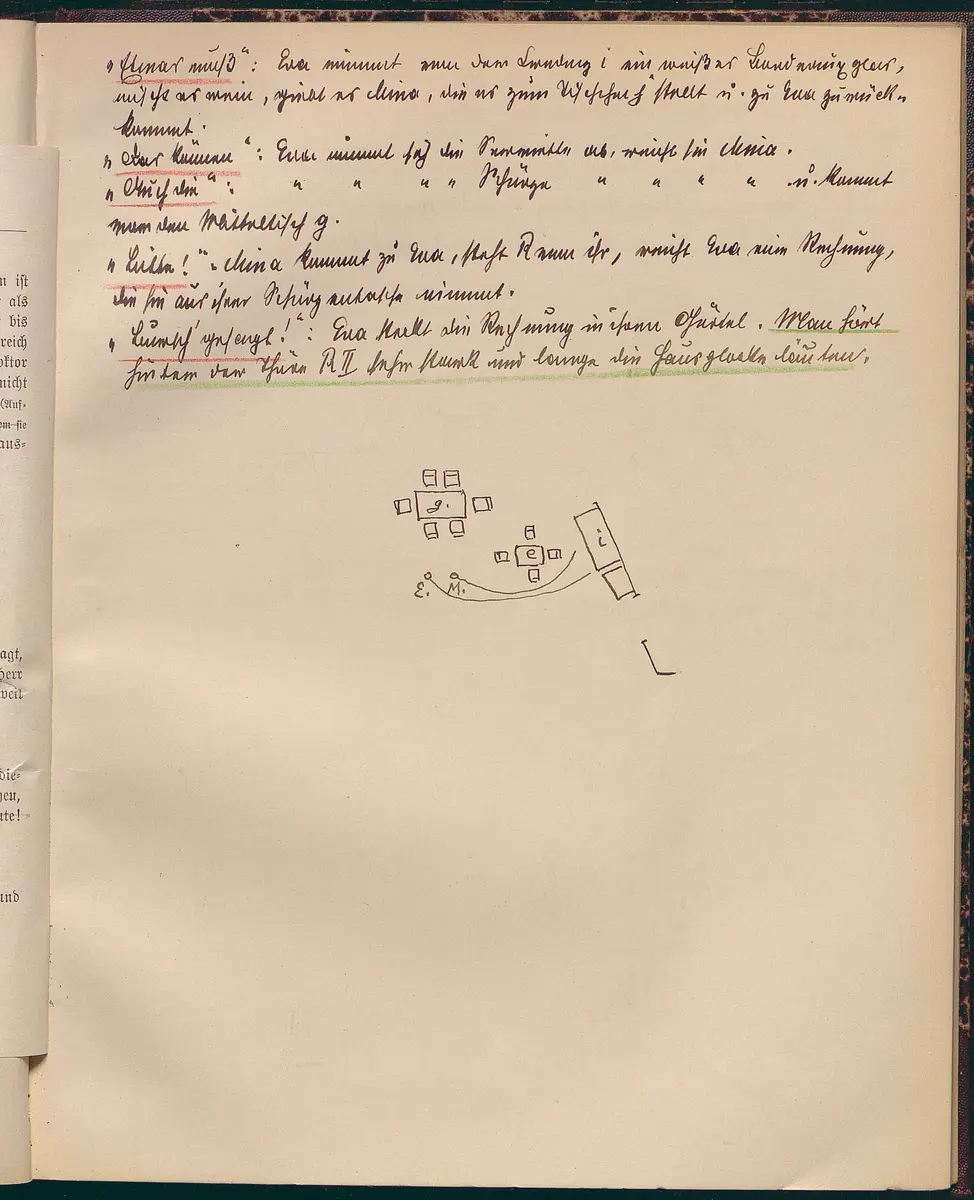 „Etwas muß“: Eva nimmt von dem Credenz i ein weißes Bordeauxglas,
wischt es rein, giebt es Mina, die es zum Tisch h stellt u. zu Eva zurück-
kommt.
„Das können“: Eva nimmt sich die Serviette ab, reicht sie Mina.
„Auch die“: „ „ „ „ Schürze „ „ „ „ u. kommt
vor den Mitteltisch g.
„Bitte!“ Mina kommt zu Eva, steht R von ihr, reicht Eva eine Rechnung,
die sie aus ihrer Schürzentasche nimmt.
gesagt!“: Eva steckt die Rechnung in ihren Gürtel. Man hört
hinter der Thüre R II sehr stark und lange die Hausglocke läuten.
g.
e
i
E. M.
n ist
als
bis
reich
oktor
nicht
(Auf-
om sie
aus-
agt,
Herr
weil
die-
gen,
ute!
und